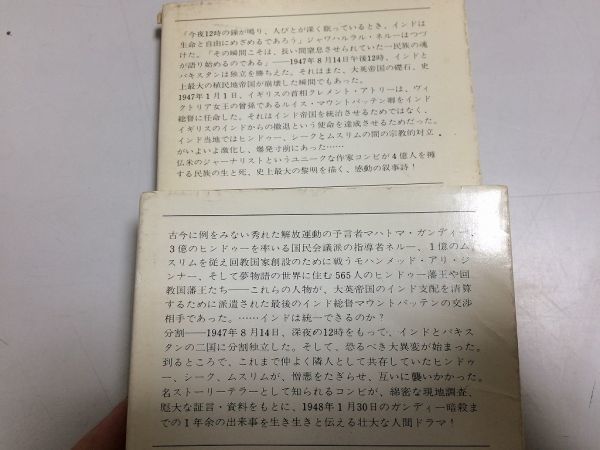 「今夜12時の鐘が鳴り、人びとが深く眠っているとき、インドは
生命と自由にめざめるであろう」ジャワハルラル・ネルーはつづ
けた。「その瞬間こそは、長い間窒息させられていた一民族の魂
が語り始めるのである」――1947年8月14日午後12時、インドと
パキスタンは独立を勝ちえた。それはまた、大英帝国の礎石、史
上最大の植民地帝国が崩壊した瞬間でもあった。
1947年1月1日、イギリスの首相クレメント・アトリーは、ヴィ
クトリア女王の曾孫であるルイス・マウントバッテン卿をインド
総督に任命した。それはインド帝国を統治させるためではなく、
イギリスのインドからの撤退という使命を達成させるためだった。
インド当地ではヒンドゥー、シークとムスリムの間の宗教的対立
がいよいよ激化し、爆発寸前にあった……
仏米のジャーナリストというユニークな作家コンビが4億人を擁
する民族の生と死、史上最大の黎明を描く、感動の叙事詩!
古今に例をみない秀れた解放運動の予言者マハトマ・ガンディー、
3億のヒンドゥーを率いる国民会議派の指導者ネルー、1億のム
スリムを従え回教国家創設のために戦うモハンメッド・アリ・ジ
ンナー、そして夢物語の世界に住む565人のヒンドゥー藩王や回
教国藩王たち――これらの人物が、大英帝国のインド支配を清算
するために派遣された最後のインド総督マウントバッテンの交渉
相手であった。……インドは統一できるのか?
分割――1947年8月14日、深夜の12時をもって、インドとパキス
タンの二国に分割独立した。そして、恐るべき大異変が始まった。
到るところで、これまで仲よく隣人として共存していたヒンドゥ
ー、シーク、ムスリムが、憎悪をたぎらせ、互いに襲いかかった。
名ストーリーテラーとして知られるコンビが、綿密な現地調査、
厖大な証言・資料をもとに、1948年1月30日のガンディー暗殺ま
での1年余の出来事を生き生きと伝える壮大な人間ドラマ!